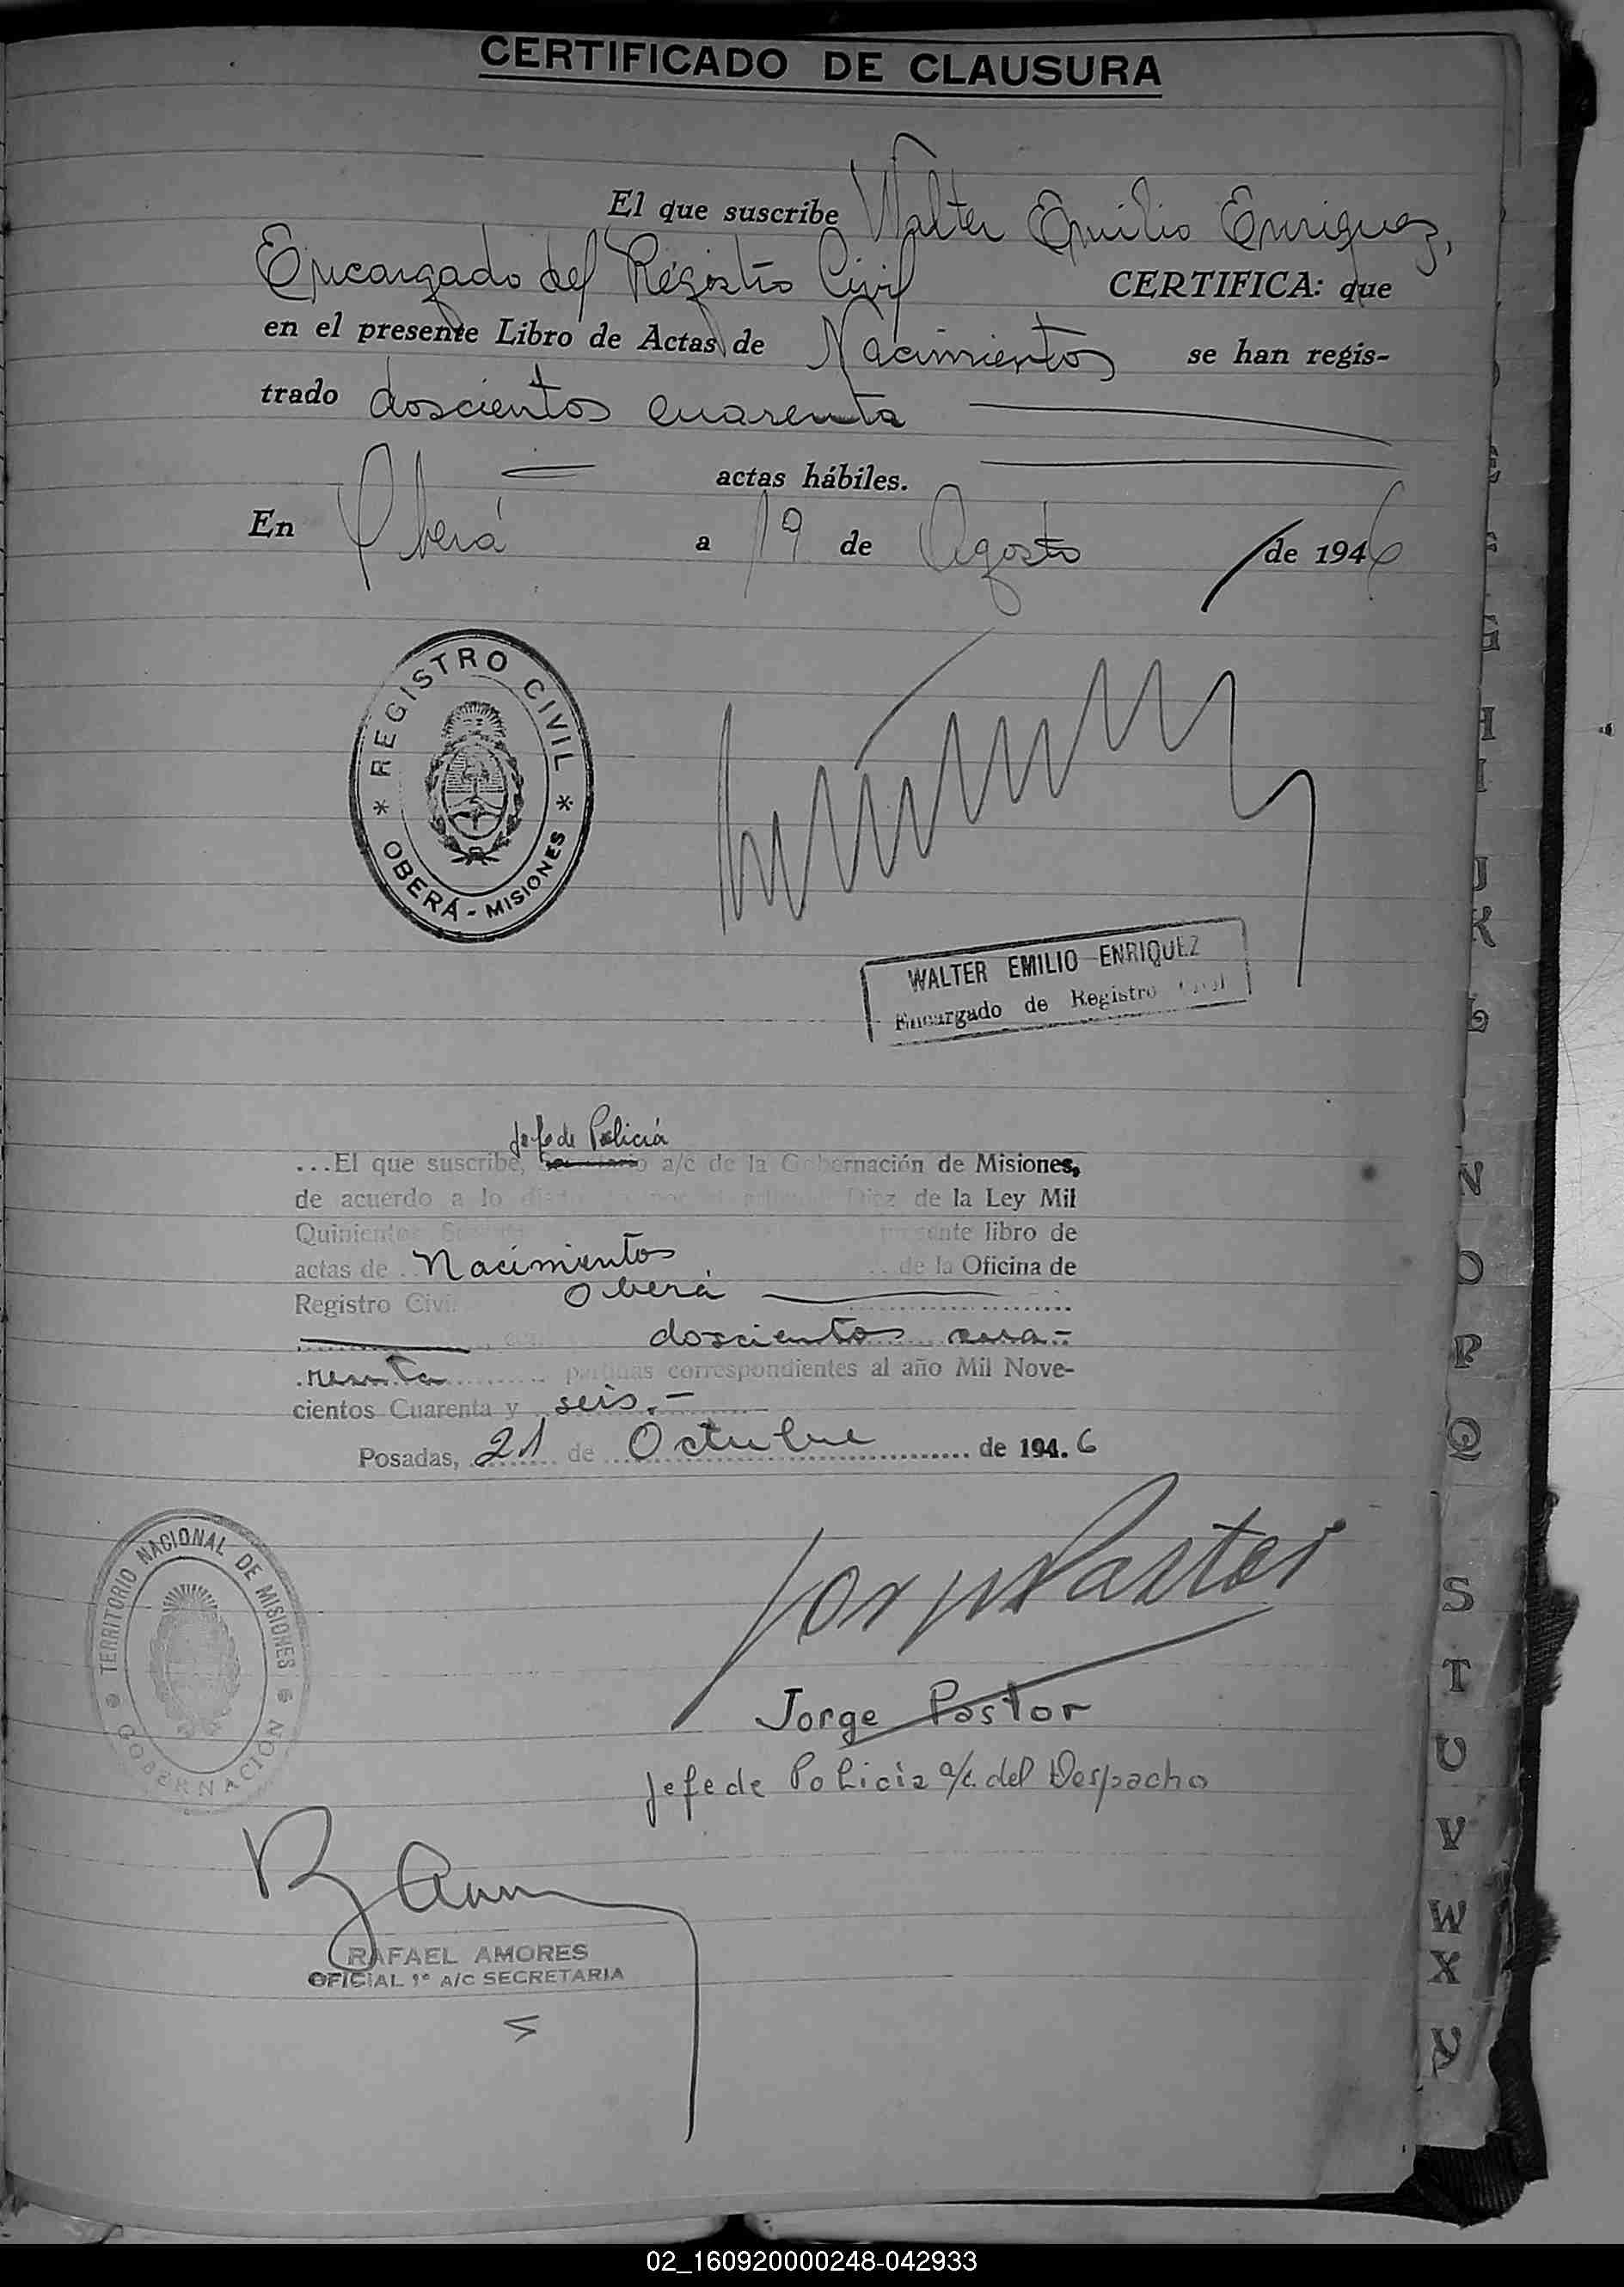 CERTIFICADO DE CLAUSURA
El que suscribe Walter Emilio Enriquez,
Encargado del Registro Civil CERTIFICA: que
en el presente Libro de Actas de Nacimientos se han regis-
trado doscientos cuarenta
actas hábiles.
En Oberá a 19 de Agosto de 1946
REGISTRO CIVIL
OBERÁ - MISIONES
WALTER EMILIO ENRIQUEZ
Encargado de Registro Civil
Jefe de Policia
...El que suscribe, a/c de la Gobernación de Misiones,
de acuerdo a lo Diez de la Ley Mil
Quinientos presente libro de
actas de Nacimientos de la Oficina de
Registro Civil Oberá
doscientos cua-
renta partidas correspondientes al año Mil Nove-
cientos Cuarenta y seis.-
Posadas, 21 de Octubre de 1946
TERRITORIO NACIONAL DE MISIONES
GOBERNACIÓN
Jorge Pastor
Jorge Pastor
Jefe de Policia a/c. del Despacho
RAFAEL AMORES
OFICIAL 1º A/C SECRETARIA
G
H
I
J
K
L
N
O
P
Q
S
T
U
V
W
X
Y
02_160920000248-042933